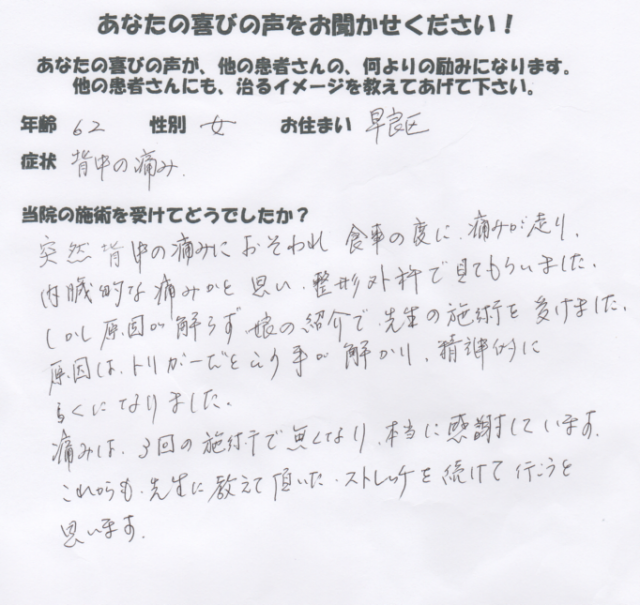 あなたの喜びの声をお聞かせください！
あなたの喜びの声が、他の患者さんの、何よりの励みになります。
他の患者さんにも、治るイメージを教えてあげて下さい。
年齢 62 性別 女 お住まい 早良区
症状 背中の痛み.
当院の施術を受けてどうでしたか？
突然背中の痛みにおそわれ 食事の度に、痛みが走り、
内臓的な痛みかと思い、整形外科で見てもらいました。
しかし原因が解らず娘の紹介で、先生の施術を受けました。
原因は、トリガーだという事が解かり、精神的に
らくになりました。
痛みは、3回の施術で無くなり、本当に感謝しています。
これからも、先生に教えて頂いた、ストレッチを続けて行こうと
思います。